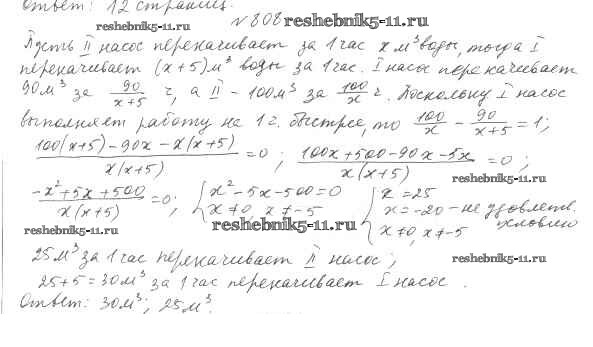 Ответ: 12 страниц.
reshebnik5-11.ru
№808 reshebnik5-11.ru
Пусть II насос перекачивает за 1 час x м³ воды, тогда I
перекачивает (x+5) м³ воды за 1 час. I насос перекачивает
90 м³ за 90/(x+5) ч, а II - 100 м³ за 100/x ч. Поскольку I насос
выполняет работу на 1 ч. быстрее, то 100/x - 90/(x+5) = 1;
(100(x+5)-90x-x(x+5))/(x(x+5)) = 0; (100x+500-90x-5x)/(x(x+5)) = 0;
reshebnik5-11.ru
(-x²+5x+500)/(x(x+5)) = 0; { x²-5x-500=0 { x=25
x≠0, x≠-5 x=-20 - не удовлетв.
условию
x≠0, x≠-5
reshebnik5-11.ru reshebnik5-11.ru
25 м³ за 1 час перекачивает II насос;
reshebnik5-11.ru
25+5=30 м³ за 1 час перекачивает I насос.
Ответ: 30 м³; 25 м³.
reshebnik5-11.ru